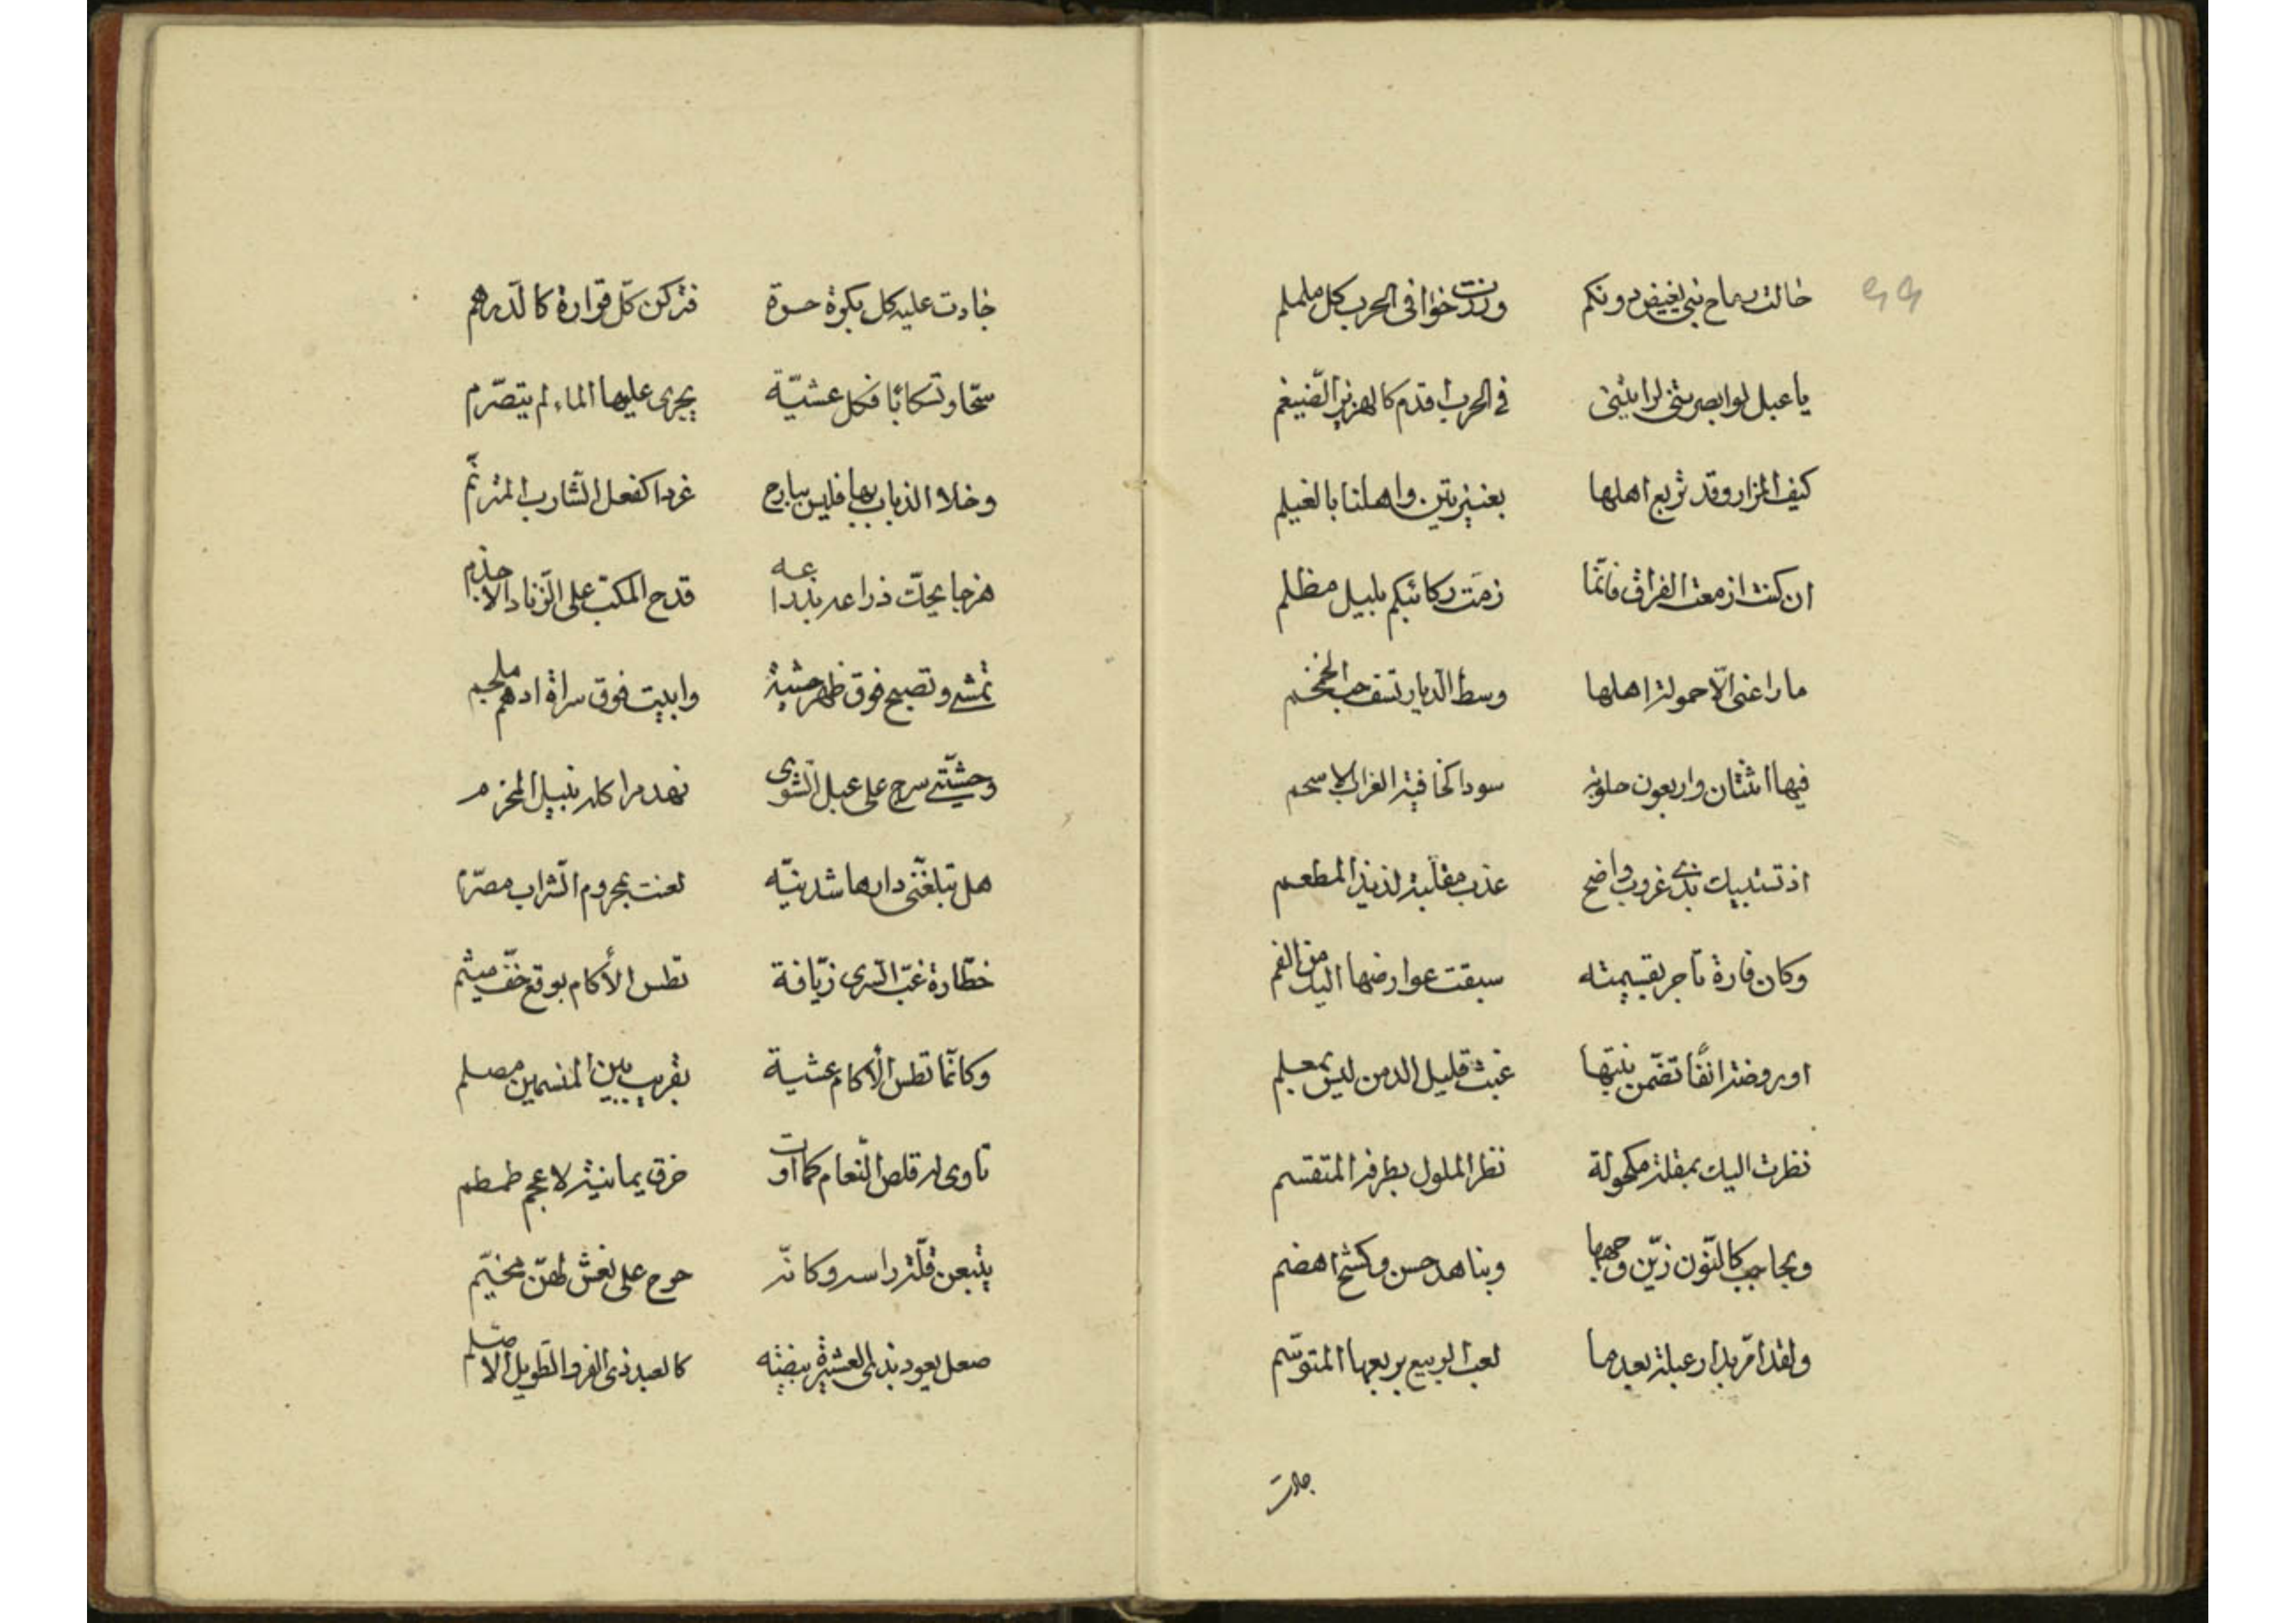 حالت رماح بني بغيض دونكم ورنت خوافى الحرب كل ململم
يا عبل لو ابصرتني لرايتني فى الحرب اقدم كالهزبر الضّيغم
كيف المزار وقد تربع اهلها بعنيزتين واهلنا بالغيلم
ان كنت ازمعت الفراق فانّما زمّت ركائبكم بليل مظلم
ما راعنى الّا حمولة اهلها وسط الدّيار تسف حب الخمخم
فيها اثنتان واربعون حلوبة سودا كخافية الغراب الاسحم
اذ تستبيك بذى غروب واضح عذب مقبله لذيذ المطعم
وكان فارة تاجر بقسيمته سبقت عوارضها اليك من الفم
او روضة انفًا تضمّن نبتها غيث قليل الدمن ليس بمعلم
نظرت اليك بمقلة مكحولة نظر الملول بطرفه المتقسم
وبحاجب كالنّون زيّن وجهها وبناهد حسن وكشح اهضم
ولقد امرّ بدار عبلة بعدما لعب الربيع بربعها المتوسّم
جادت
جادت عليه كل بكرة حرة فتركن كلّ قرارة كالدّرهم
سحّا وتسكابًا فكل عشيّة يجرى عليها الماء لم يتصرّم
وخلا الذباب بها فليس ببارح غردا كفعل الشّارب المترنّم
هزجا يحكّ ذراعه بذراعه قدح المكبّ على الزّناد الاجذم
تمشى وتصبح فوق ظهر حشية وابيت فوق سراة ادهم ملجم
وحشيّتى سرج على عبل الشّوى نهد مراكله نبيل المحزم
هل تبلغنّى دارها شدنيّه لعنت بمحروم الشّراب مصرّم
خطّارة غبّ السّرى زيّافة تطس الأكام بوقع خفّ ميثم
وكانّما تطس الأكام عشية بقريب بين المنسمين مصلم
تاوى له قلص النّعام كما اوت خرق يمانية لاعجم طمطم
يتبعن قلّة راسه وكانّه حرج على نعش لهنّ مخيّم
صعل يعود بذى العشيرة بيضه كالعبد ذى الفرو الطّويل الاصلم